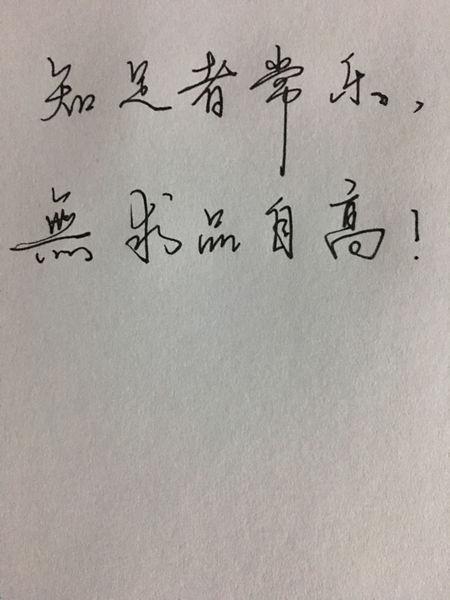 知足者常乐,
無求品自高!